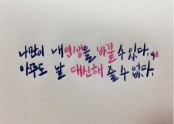 나만이 내 인생을 바꿀 수 있다.
아무도 날 대신해 줄 수 없다.